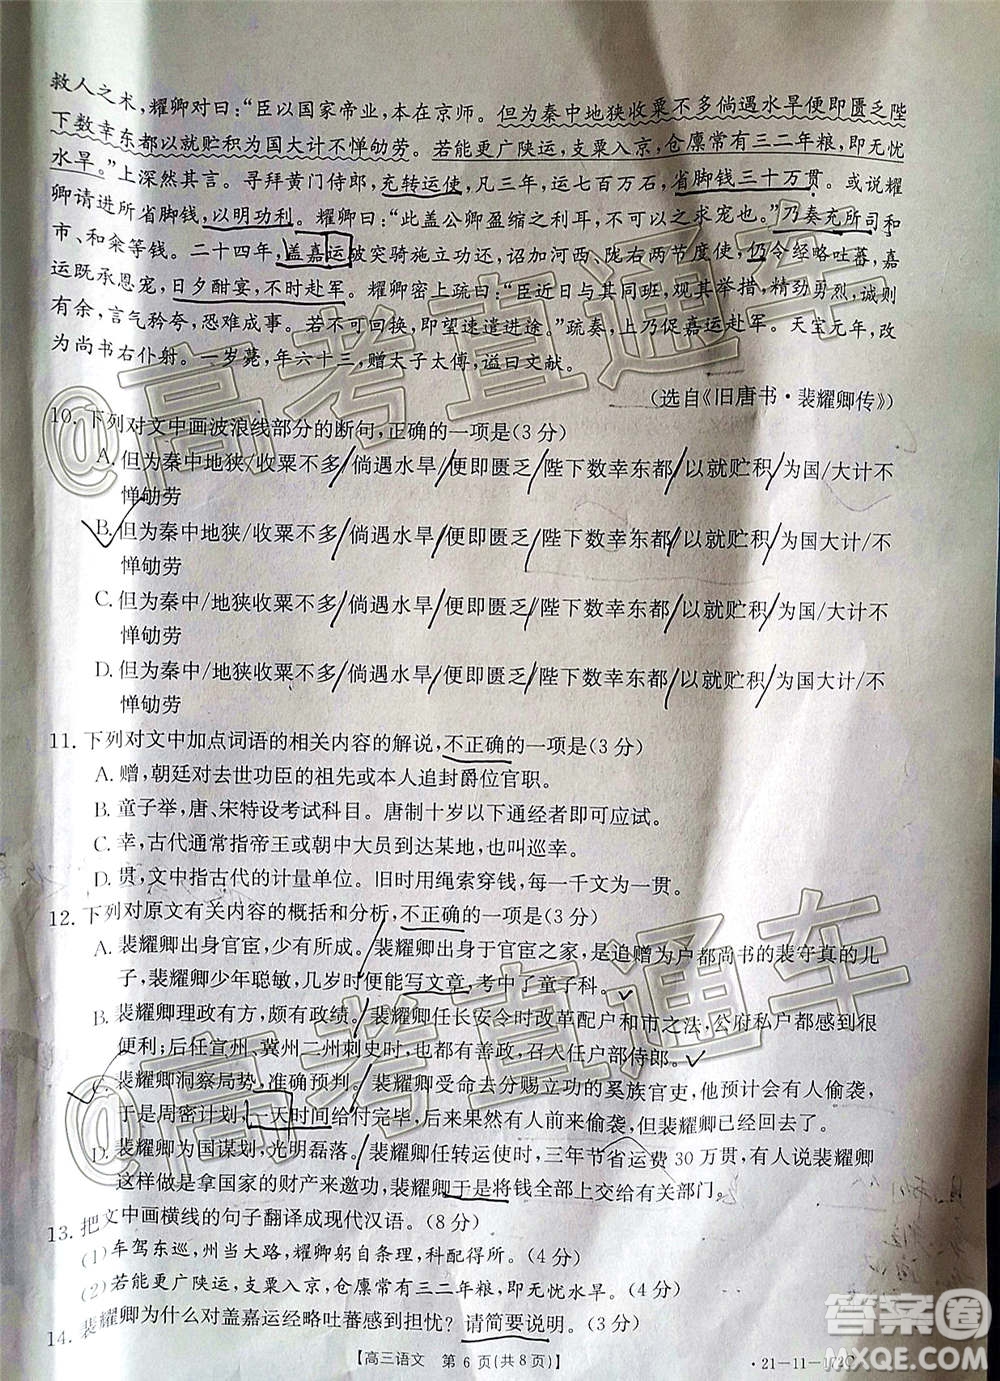 救人之术，耀卿对曰：“臣以国家帝业，本在京师。但为秦中地狭收粟不多倘遇水旱便即匮乏陛
下数幸东都以就贮积为国大计不惮劬劳。若能更广陕运，支粟入京，仓廪常有三二年粮，即无忧
水旱。”上深然其言。寻拜黄门侍郎，充转运使，凡三年，运七百万石，省脚钱三十万贯。或说耀
卿请进所省脚钱，以明功利。耀卿曰：“此盖公卿盈缩之利耳，不可以之求宠也。”乃奏充所司和
市、和籴等钱。二十四年，盖嘉运破突骑施立功还，诏加河西、陇右两节度使，仍令经略吐蕃，嘉
运既承恩宠，日夕酣宴，不时赴军。耀卿密上疏曰：“臣近日与其同班，观其举措，精劲勇烈，诚则
有余，言气矜夸，恐难成事。若不可回换，即望速遣进途。”疏奏，上乃促嘉运赴军。天宝元年，改
为尚书右仆射。一岁薨，年六十三，赠太子太傅，谥曰文献。
（选自《旧唐书·裴耀卿传》）
10. 下列对文中画波浪线部分的断句，正确的一项是（3 分）
A. 但为秦中地狭/收粟不多/倘遇水旱/便即匮乏/陛下数幸东都/以就贮积/为国/大计不
惮劬劳
B. 但为秦中地狭/收粟不多/倘遇水旱/便即匮乏/陛下数幸东都/以就贮积/为国大计/不
惮劬劳
C. 但为秦中/地狭收粟不多/倘遇水旱/便即匮乏/陛下数幸东都/以就贮积/为国/大计/不
惮劬劳
D. 但为秦中/地狭收粟不多/倘遇水旱/便即匮乏/陛下数幸东都/以就贮积/为国大计/不
惮劬劳
11. 下列对文中加点词语的相关内容的解说，不正确的一项是（3 分）
A. 赠，朝廷对去世功臣的祖先或本人追封爵位官职。
B. 童子举，唐、宋特设考试科目。唐制十岁以下通经者即可应试。
C. 幸，古代通常指帝王或朝中大员到达某地，也叫巡幸。
D. 贯，文中指古代的计量单位。旧时用绳索穿钱，每一千文为一贯。
12. 下列对原文有关内容的概括和分析，不正确的一项是（3 分）
A. 裴耀卿出身官宦，少有所成。裴耀卿出身于官宦之家，是追赠为户都尚书的裴守真的儿
子，裴耀卿少年聪敏，几岁时便能写文章，考中了童子科。
B. 裴耀卿理政有方，颇有政绩。裴耀卿任长安令时改革配户和市之法，公府私户都感到很
便利；后任宣州、冀州二州刺史时，也都有善政，召入任户部侍郎。
C. 裴耀卿洞察局势，准确预判。裴耀卿受命去分赐立功的奚族官吏，他预计会有人偷袭，
于是周密计划，一天时间给付完毕，后来果然有人前来偷袭，但裴耀卿已经回去了。
D. 裴耀卿为国谋划，光明磊落。裴耀卿任转运使时，三年节省运费 30 万贯，有人说裴耀卿
这样做是拿国家的财产来邀功，裴耀卿于是将钱全部上交给有关部门。
13. 把文中画横线的句子翻译成现代汉语。（8 分）
（1）车驾东巡，州当大路，耀卿躬自条理，科配得所。（4 分）
（2）若能更广陕运，支粟入京，仓廪常有三二年粮，即无忧水旱。（4 分）
14. 裴耀卿为什么对盖嘉运经略吐蕃感到担忧？请简要说明。（3 分）
【高三语文　第 6 页（共 8 页）】
·21-11-172C·
@高考直通车
@高考直通车
答案圈
MXQE.COM